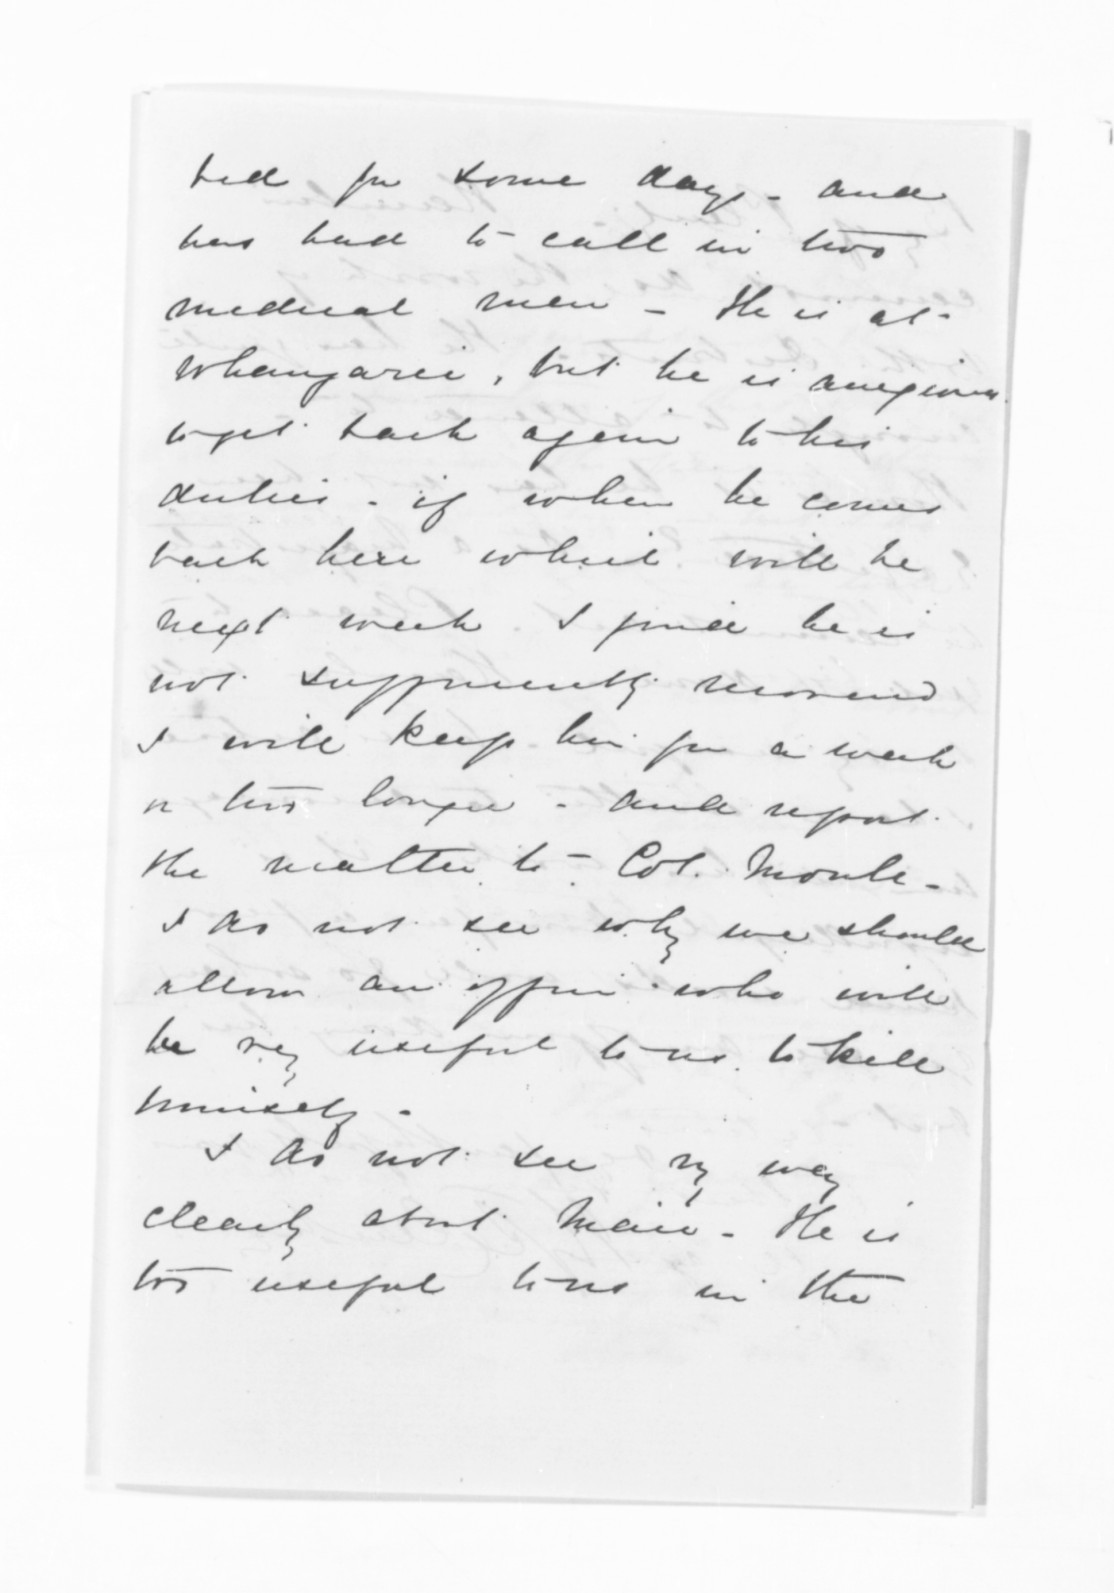 bed for some days - and
has had to call in two
medical men - He is at
Whangarei, but he is anxious
to get back again to his
duties - if when he comes
back here which will be
next week I find he is
not sufficiently recovered
I will keep him for a week
or two longer - and report
the matter to Col. Moule -
I do not see why we should
allow an officer who will
be very useful to us to kill
himself -
I do not see my way
clearly about Mair - He is
too useful to us in the